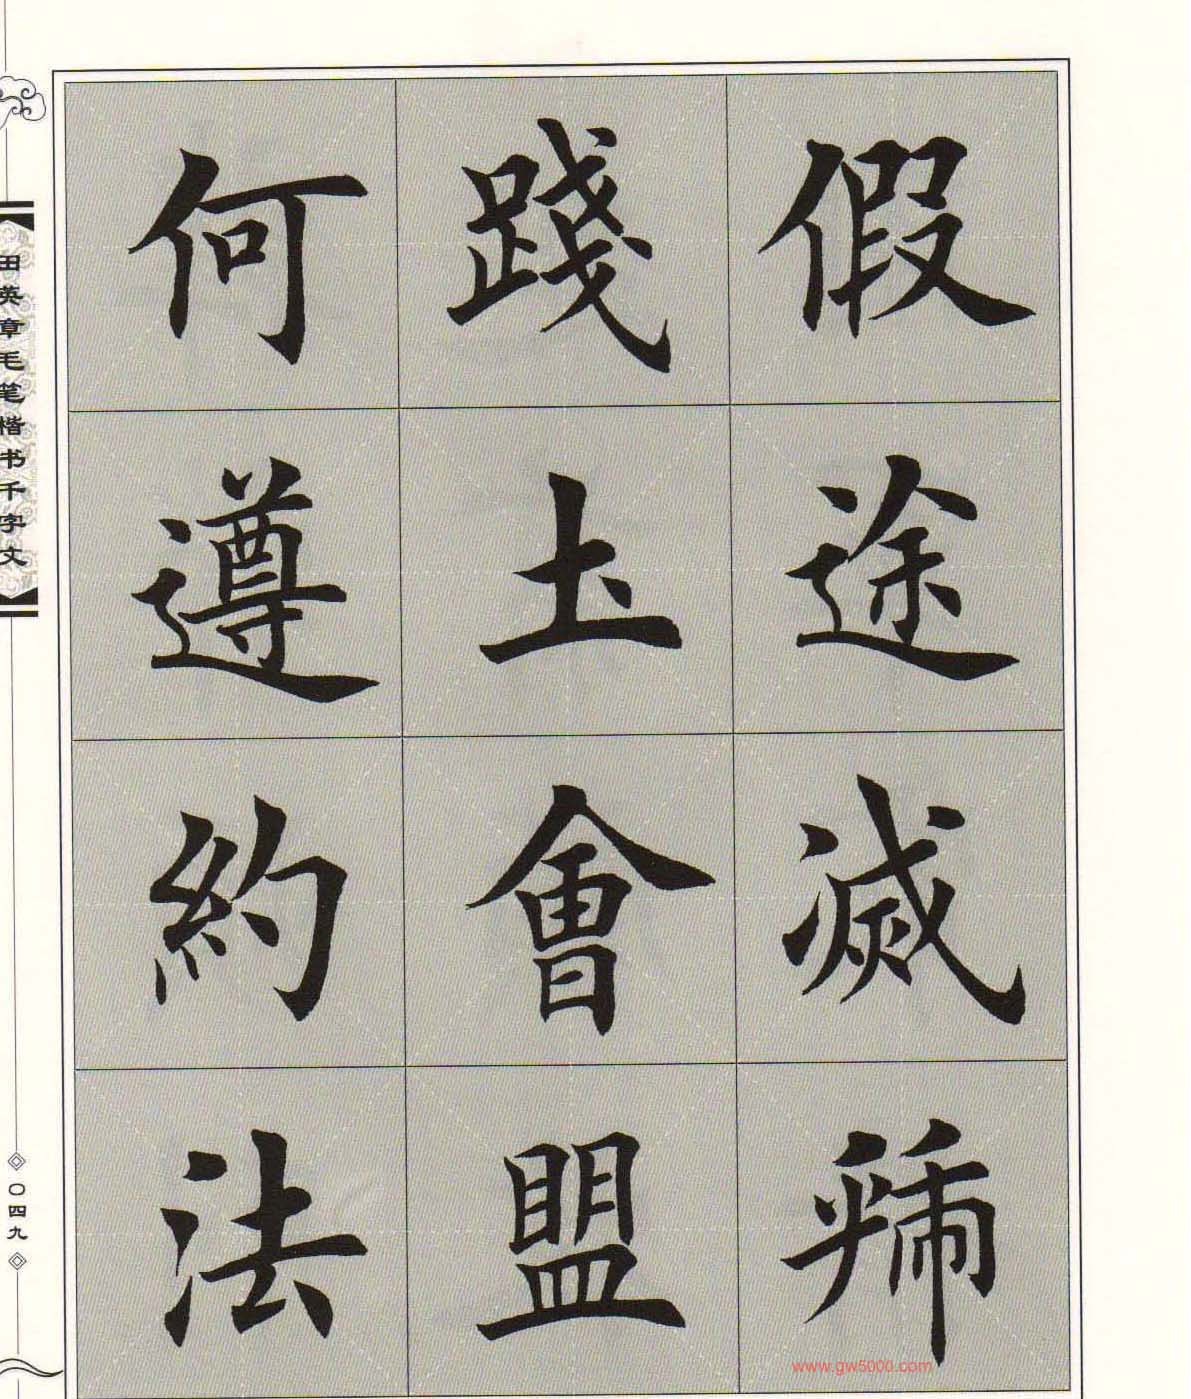 假途滅虢
踐土會盟
何遵約法
田英章毛笔楷书千字文
〇四九
www.gw5000.com